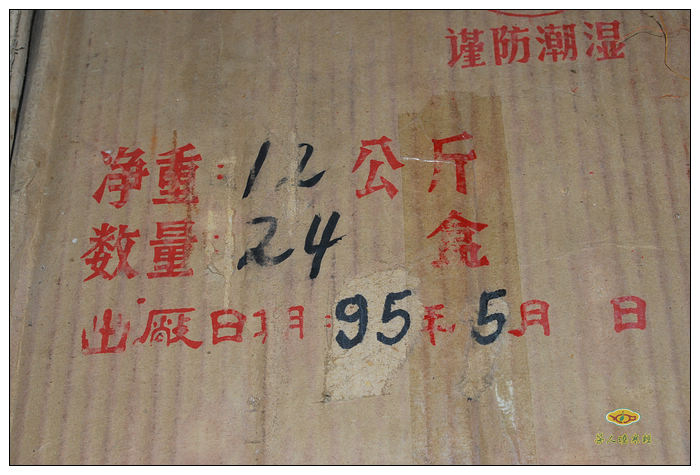 谨防潮湿
净重:12公斤
数量:24 盒
出厰日期:95年5月 日